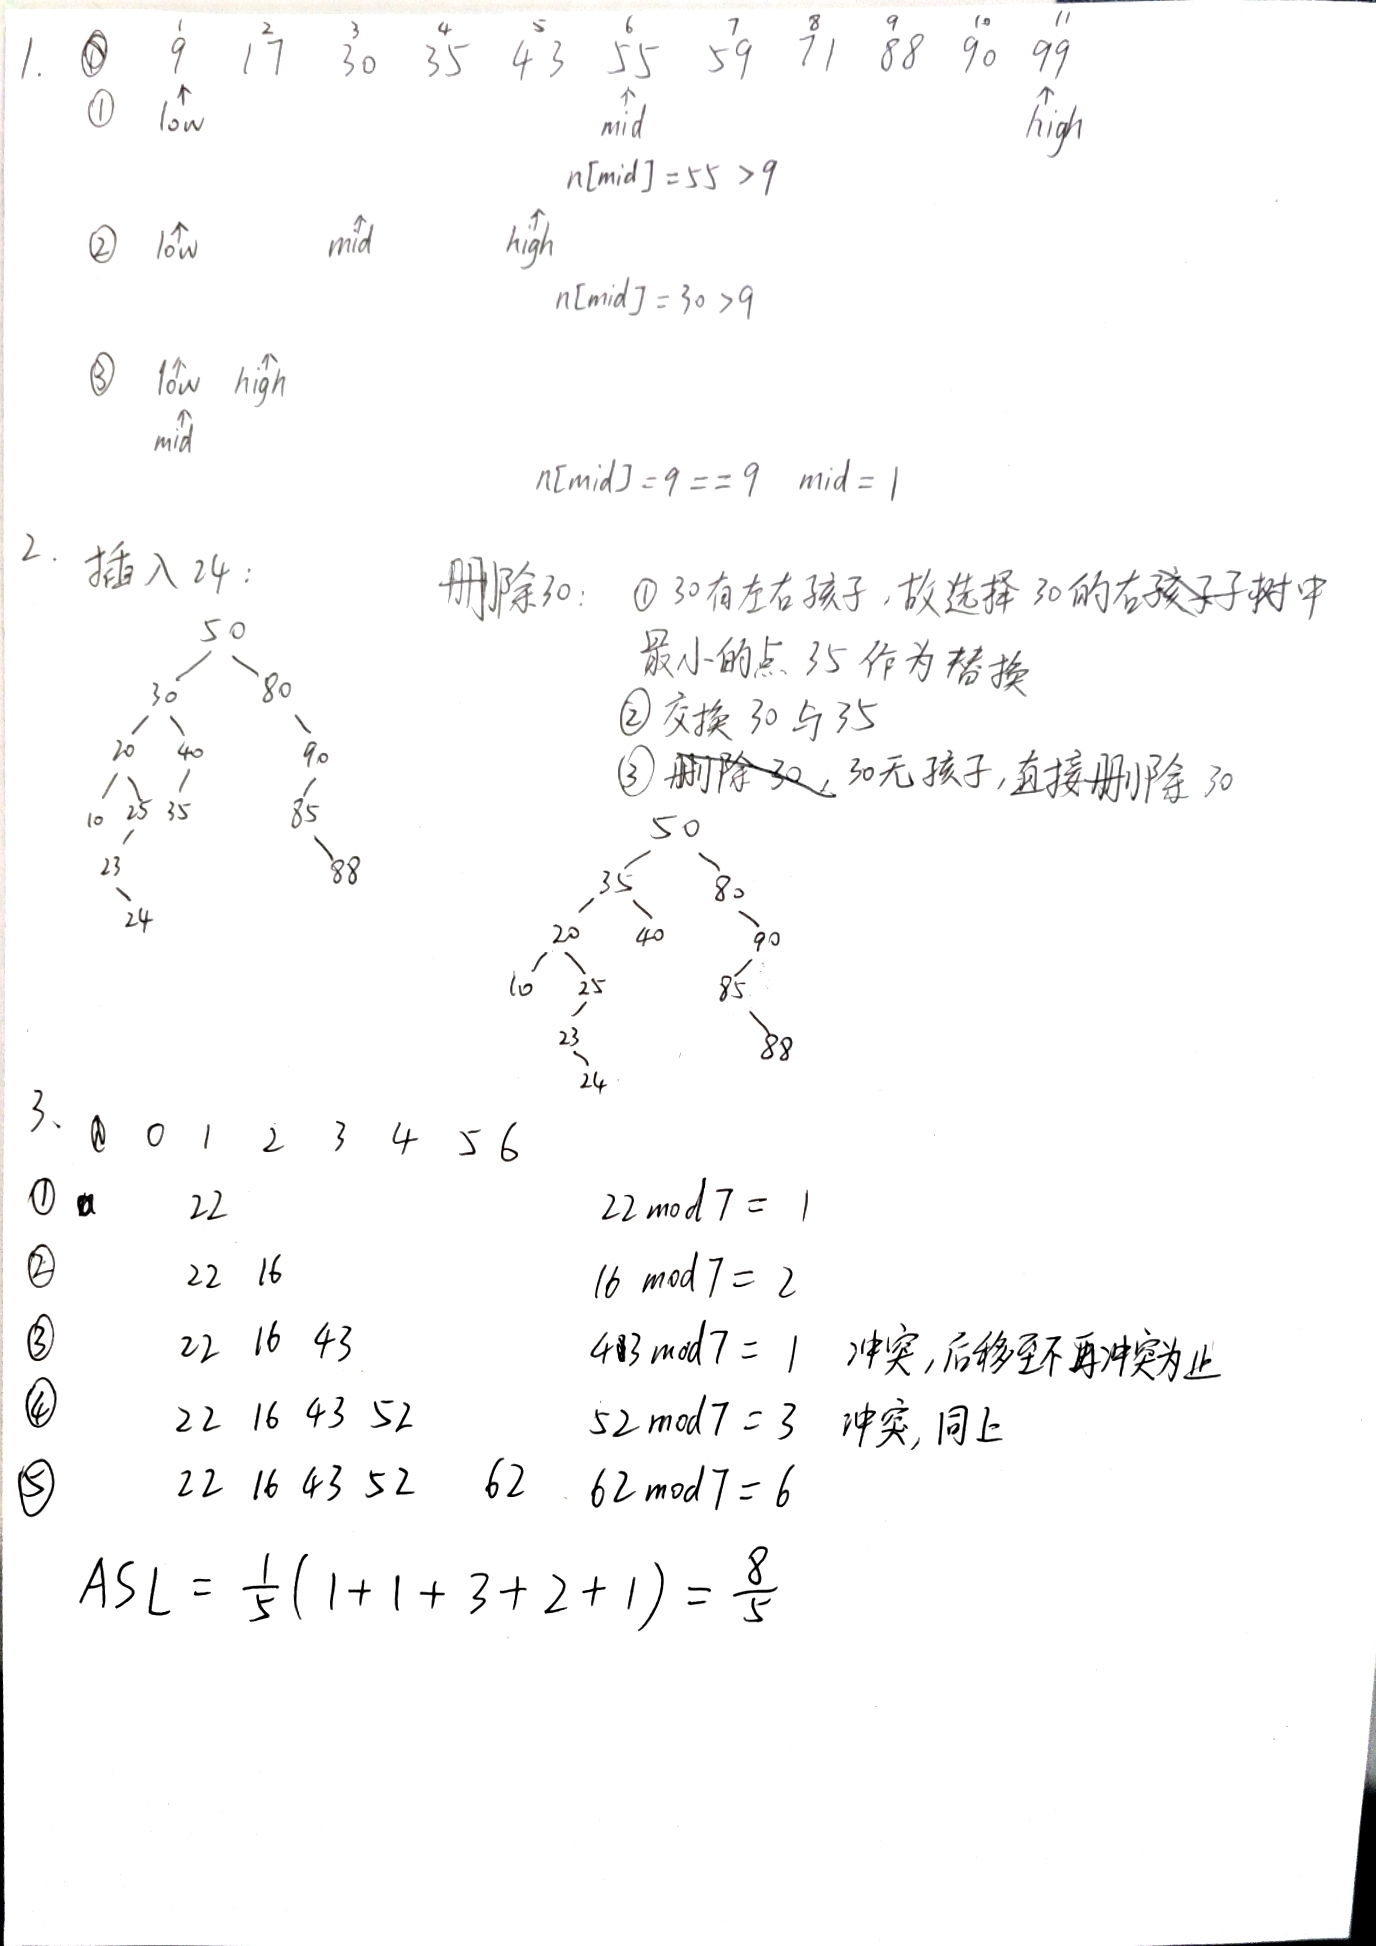 1 2 3 4 5 6 7 8 9 10 11
1. 9 17 30 35 43 55 59 71 88 90 99
① low mid high
n[mid]=55>9
② low mid high
n[mid]=30>9
③ low high
mid
n[mid]=9==9 mid=1
2. 插入24:
50
30 80
20 40 90
10 25 35 85
23 88
24
删除30: ①30有左右孩子,故选择30的右子树中
最小的点35作为替换
②交换30与35
③删除30, 30无孩子,直接删除30
50
35 80
20 40 90
10 25 85
23 88
24
3、 0 1 2 3 4 5 6
① 22 22 mod 7 = 1
② 22 16 16 mod 7 = 2
③ 22 16 43 43 mod 7 = 1 冲突,后移至不再冲突为止
④ 22 16 43 52 52 mod 7 = 3 冲突,同上
⑤ 22 16 43 52 62 62 mod 7 = 6
ASL = 1/5 (1+1+3+2+1) = 8/5